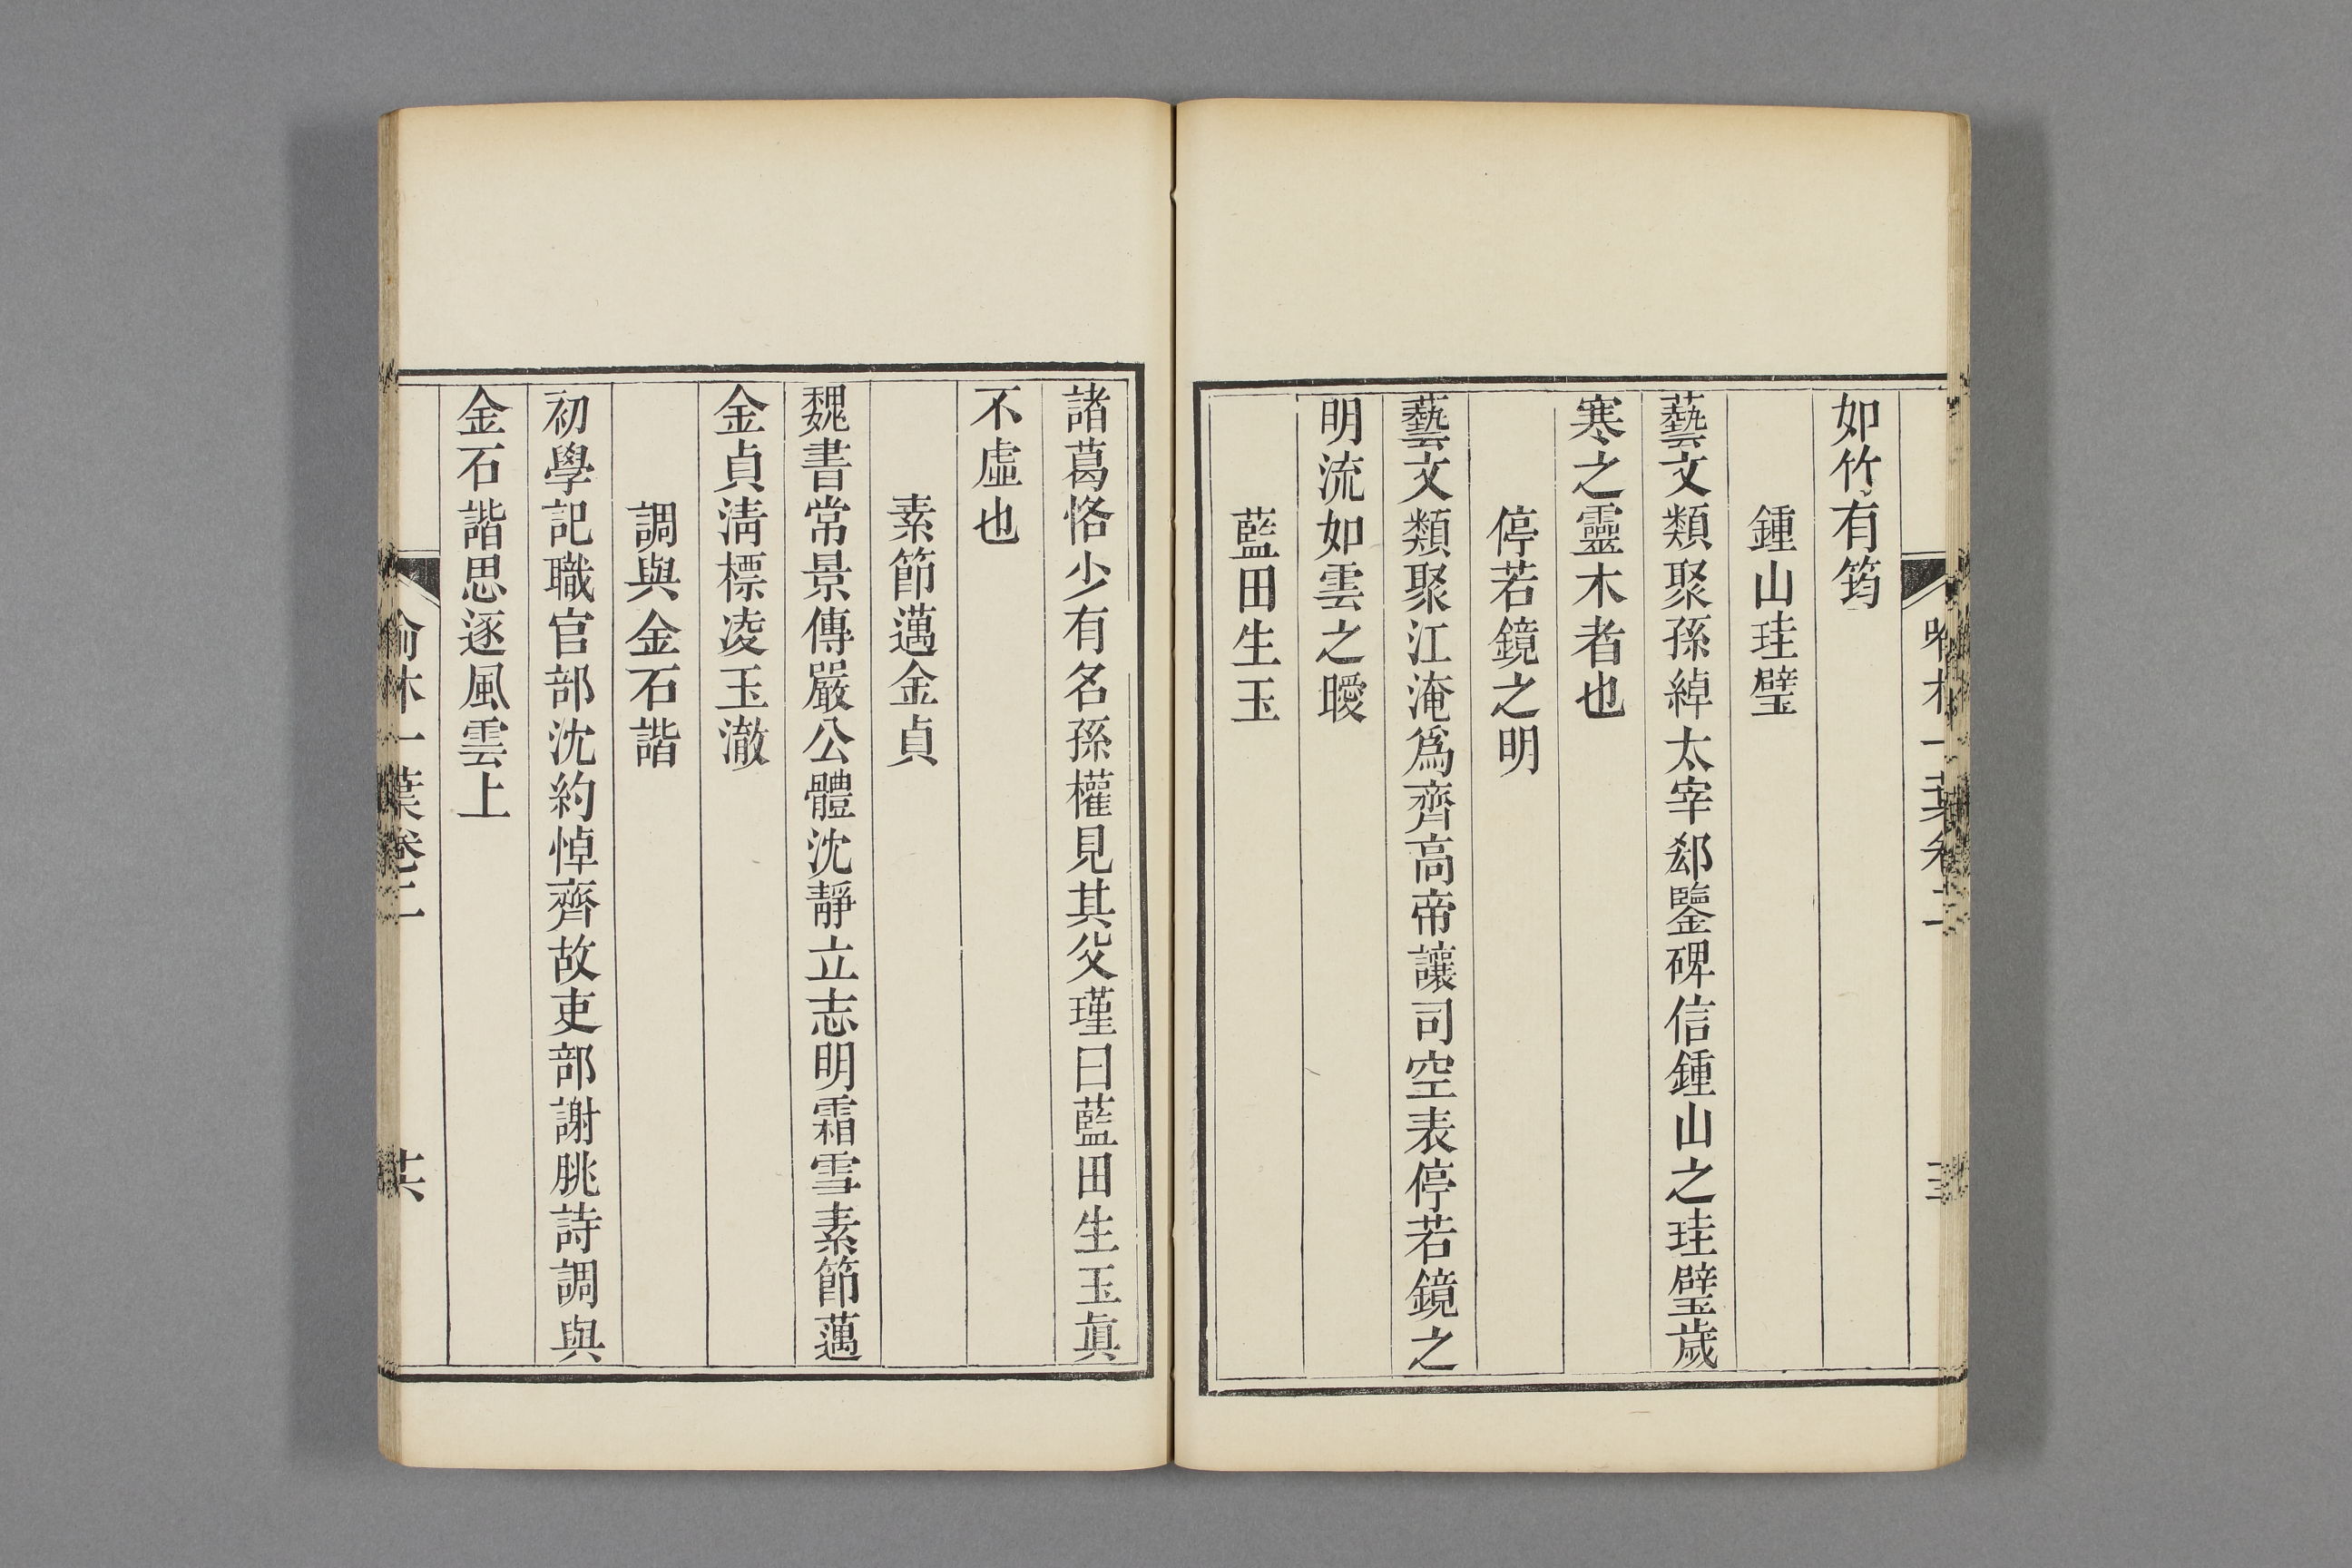 如竹有筠
鍾山珪璧
藝文類聚孫綽太宰郄鑒碑信鍾山之珪璧歲
寒之靈木者也
停若鏡之明
藝文類聚江淹爲齊高帝讓司空表停若鏡之
明流如雲之曖
藍田生玉
諸葛恪少有名孫權見其父瑾曰藍田生玉眞
不虛也
素節邁金貞
魏書常景傳嚴公體沈靜立志明霜雪素節邁
金貞淸標凌玉澈
調與金石諧
初學記職官部沈約悼齊故吏部謝朓詩調與
金石諧思逐風雲上
喻林一葉卷二